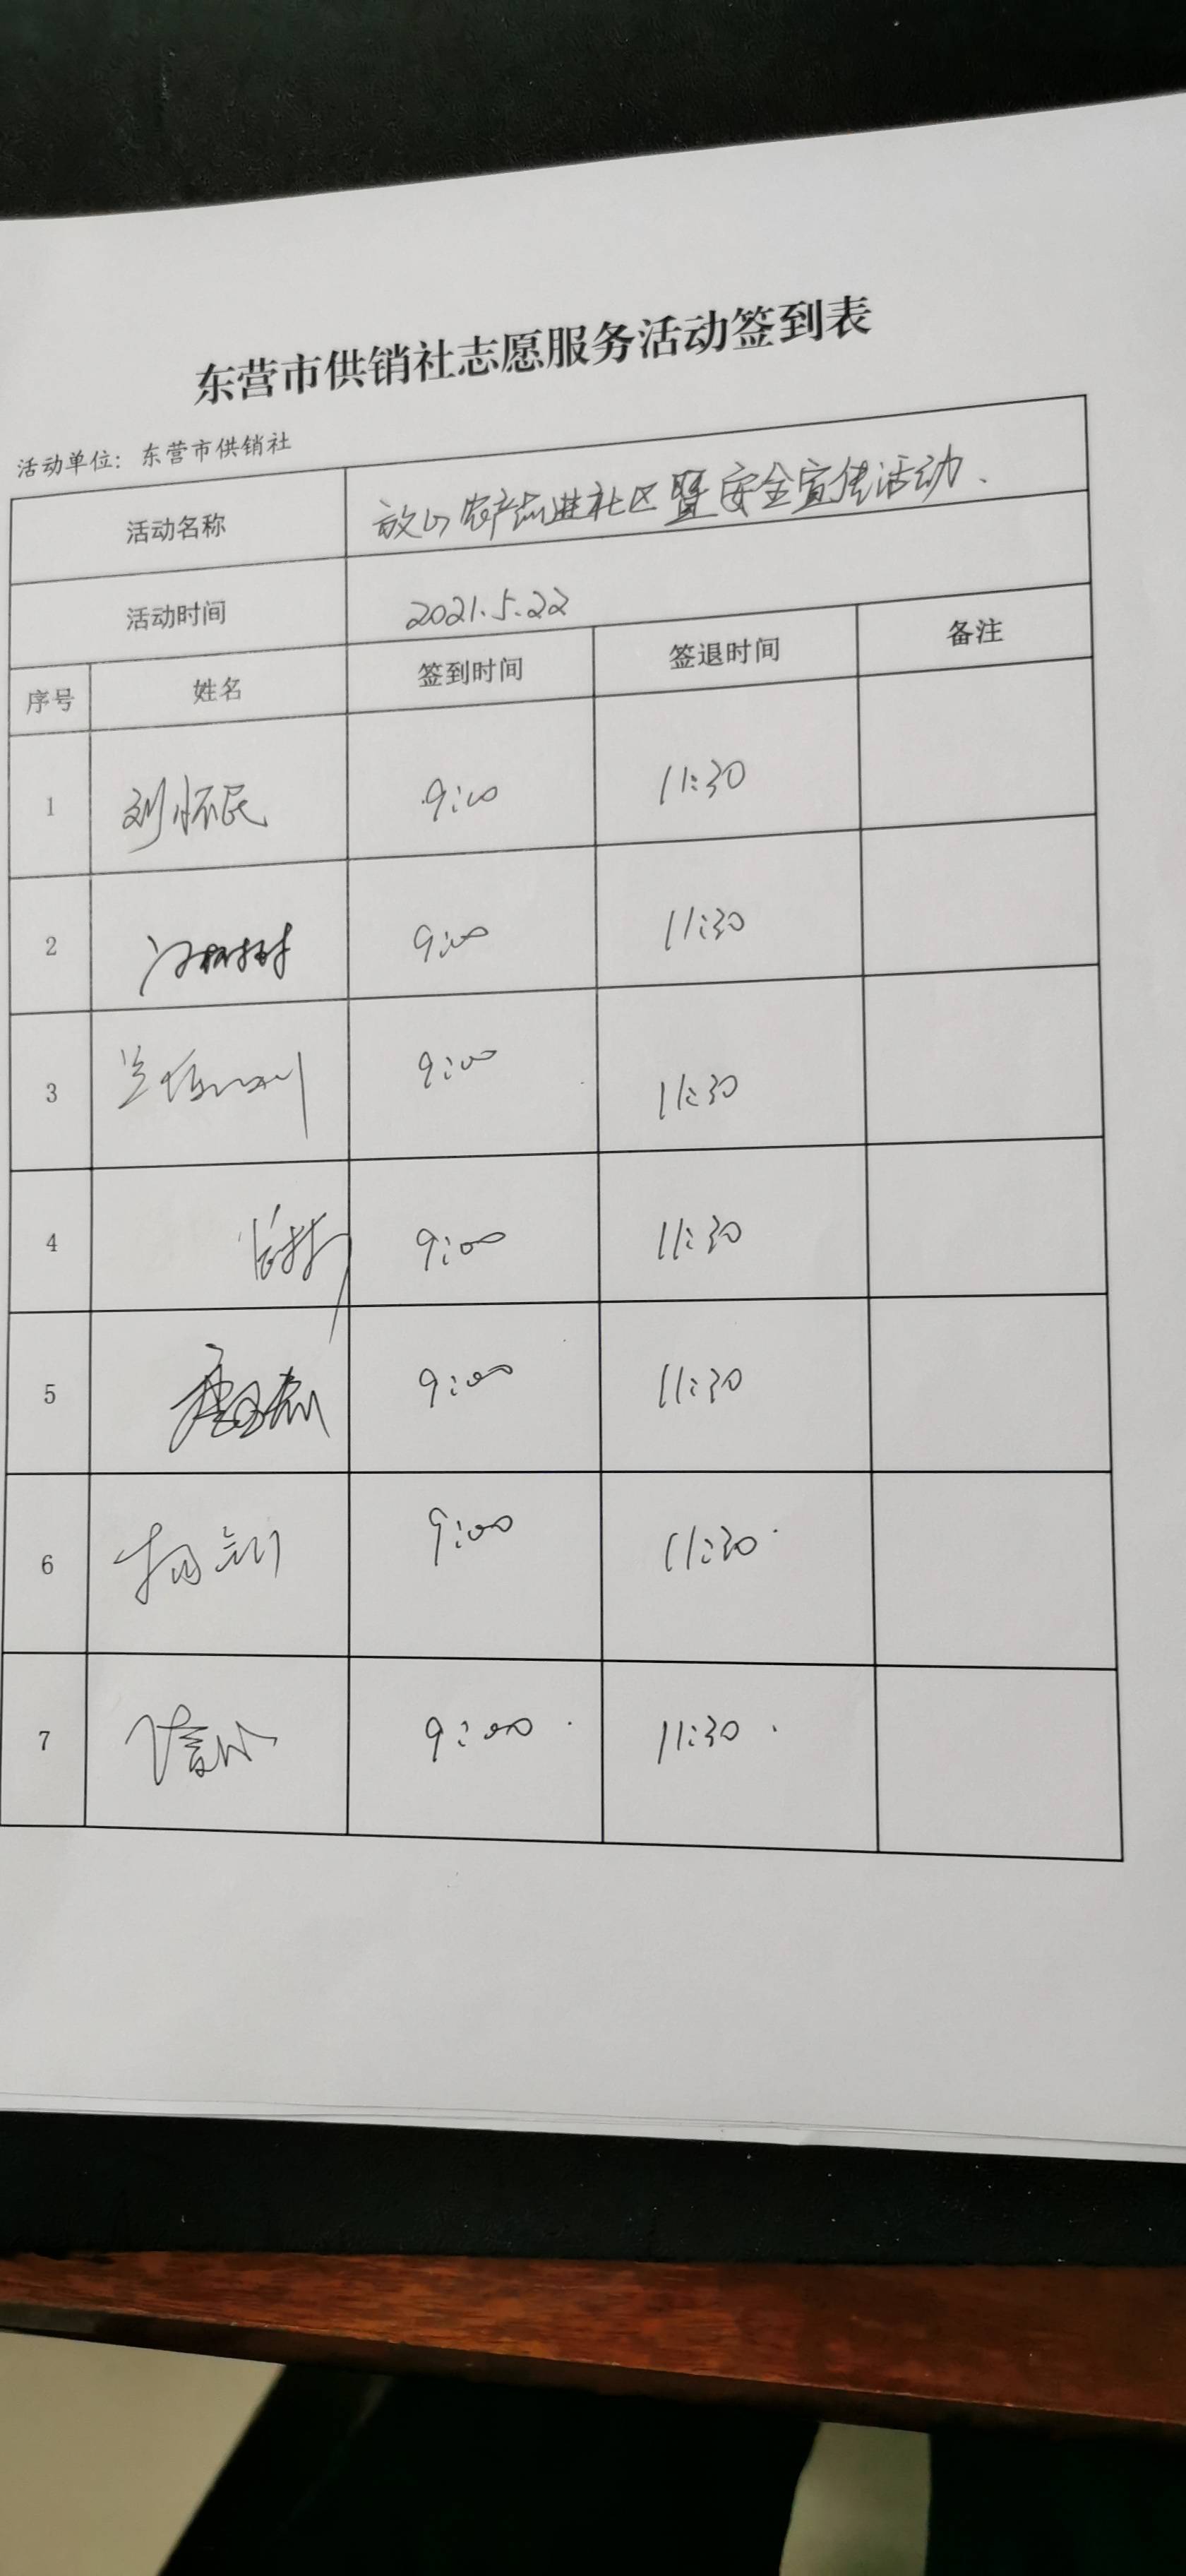 东营市供销社志愿服务活动签到表
活动单位：东营市供销社
活动名称 放心农产品进社区暨安全宣传活动.
活动时间 2021.5.22
序号 姓名 签到时间 签退时间 备注
1 刘怀民 9:00 11:30
2 9:00 11:30
3 9:00 11:30
4 9:00 11:30
5 9:00 11:30
6 9:00 11:30
7 9:00 11:30